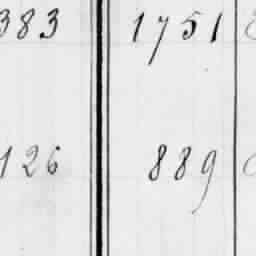 383 1751
126 889